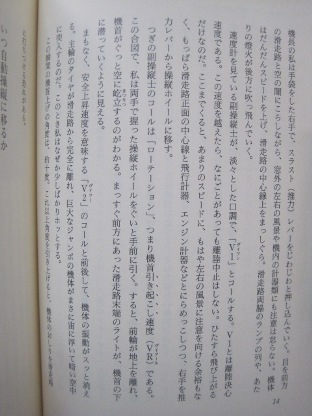 14
機長の私は手袋をした右手で、スラスト(推力)レバーをじわじわと押し込んでいく。目を前方
の滑走路と空の闇にこらしながら、窓外の左右の風景や機内の計器類にも注意は怠らない。機体
はだんだんスピードを上げ、滑走路の中心線上をまっしぐら。滑走路両脇のランプの列や、あた
りの燈火が後方に吹っ飛んでいく。
速度計を見ている副操縦士が、淡々とした口調で、「V1」とコールする。V1とは離陸決心
速度である。この速度を越えたら、なにごとがあっても離陸中止はしない。ひたすら飛び上がる
だけなのだ。ここまでくると、あまりのスピードに、もはや左右の風景に注意を向ける余裕もな
く、もっぱら滑走路正面の中心線と飛行計器、エンジン計器などとにらめっこしつつ、右手を推
力レバーから操縦ホイールに移す。
つぎの副操縦士のコールは「ローテーション」、つまり機首引き起こし速度(VR)である。
この合図で、私は両手で握った操縦ホイールをぐいと手前に引く。すると、前輪が地上を離れ、
機首がぐっと空に屹立するのがわかる。まっすぐ前方にあった滑走路末端のライトが、機首の下
に潜っていくように見える。
まもなく、安全上昇速度を意味する「V2」のコールと前後して、機体の振動がスッと消え
る。主輪のタイヤが滑走路から完全に離れ、巨大なジャンボの機体がまさに宙に浮いて暗い空中
に突入するのだ。このとき私はなぜか少しばかりホッとする。
この瞬間の機首上げの角度は、約十度。これ以上角度を引き上げると、機体の
いつ自動操縦に移るか